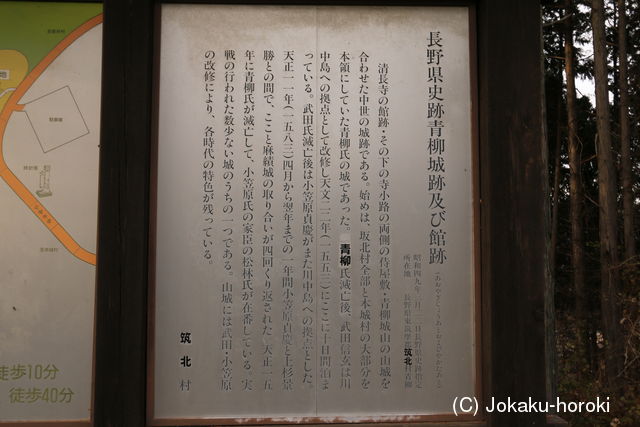 長野県史跡青柳城跡及び館跡
(あおやぎじょうあとおよびやかたあと)
昭和四九年一月二一日長野県史跡指定
所在地 長野県東筑摩郡筑北村青柳
清長寺の館跡・その下の寺小路の両側の侍屋敷・青柳城山の山城を
合わせた中世の城跡である。始めは、坂北村全部と本城村の大部分を
本領にしていた青柳氏の城であった。青柳氏滅亡後、武田信玄は川
中島への拠点として改修し天文二二年(一五五三)にここに十日間泊ま
っている。武田氏滅亡後は小笠原貞慶がまた川中島への拠点とした。
天正一一年(一五八三)四月から翌年までの一年間小笠原貞慶と上杉景
勝との間で、ここと麻績城の取り合いが四回くり返された。天正一五
年に青柳氏が滅亡して、小笠原氏の家臣の松林氏が在番している。実
戦の行われた数少ない城のうちの一つである。山城には武田・小笠原
の改修により、各時代の特色が残っている。
筑北村
徒歩10分
徒歩40分
(C) Jokaku-horoki